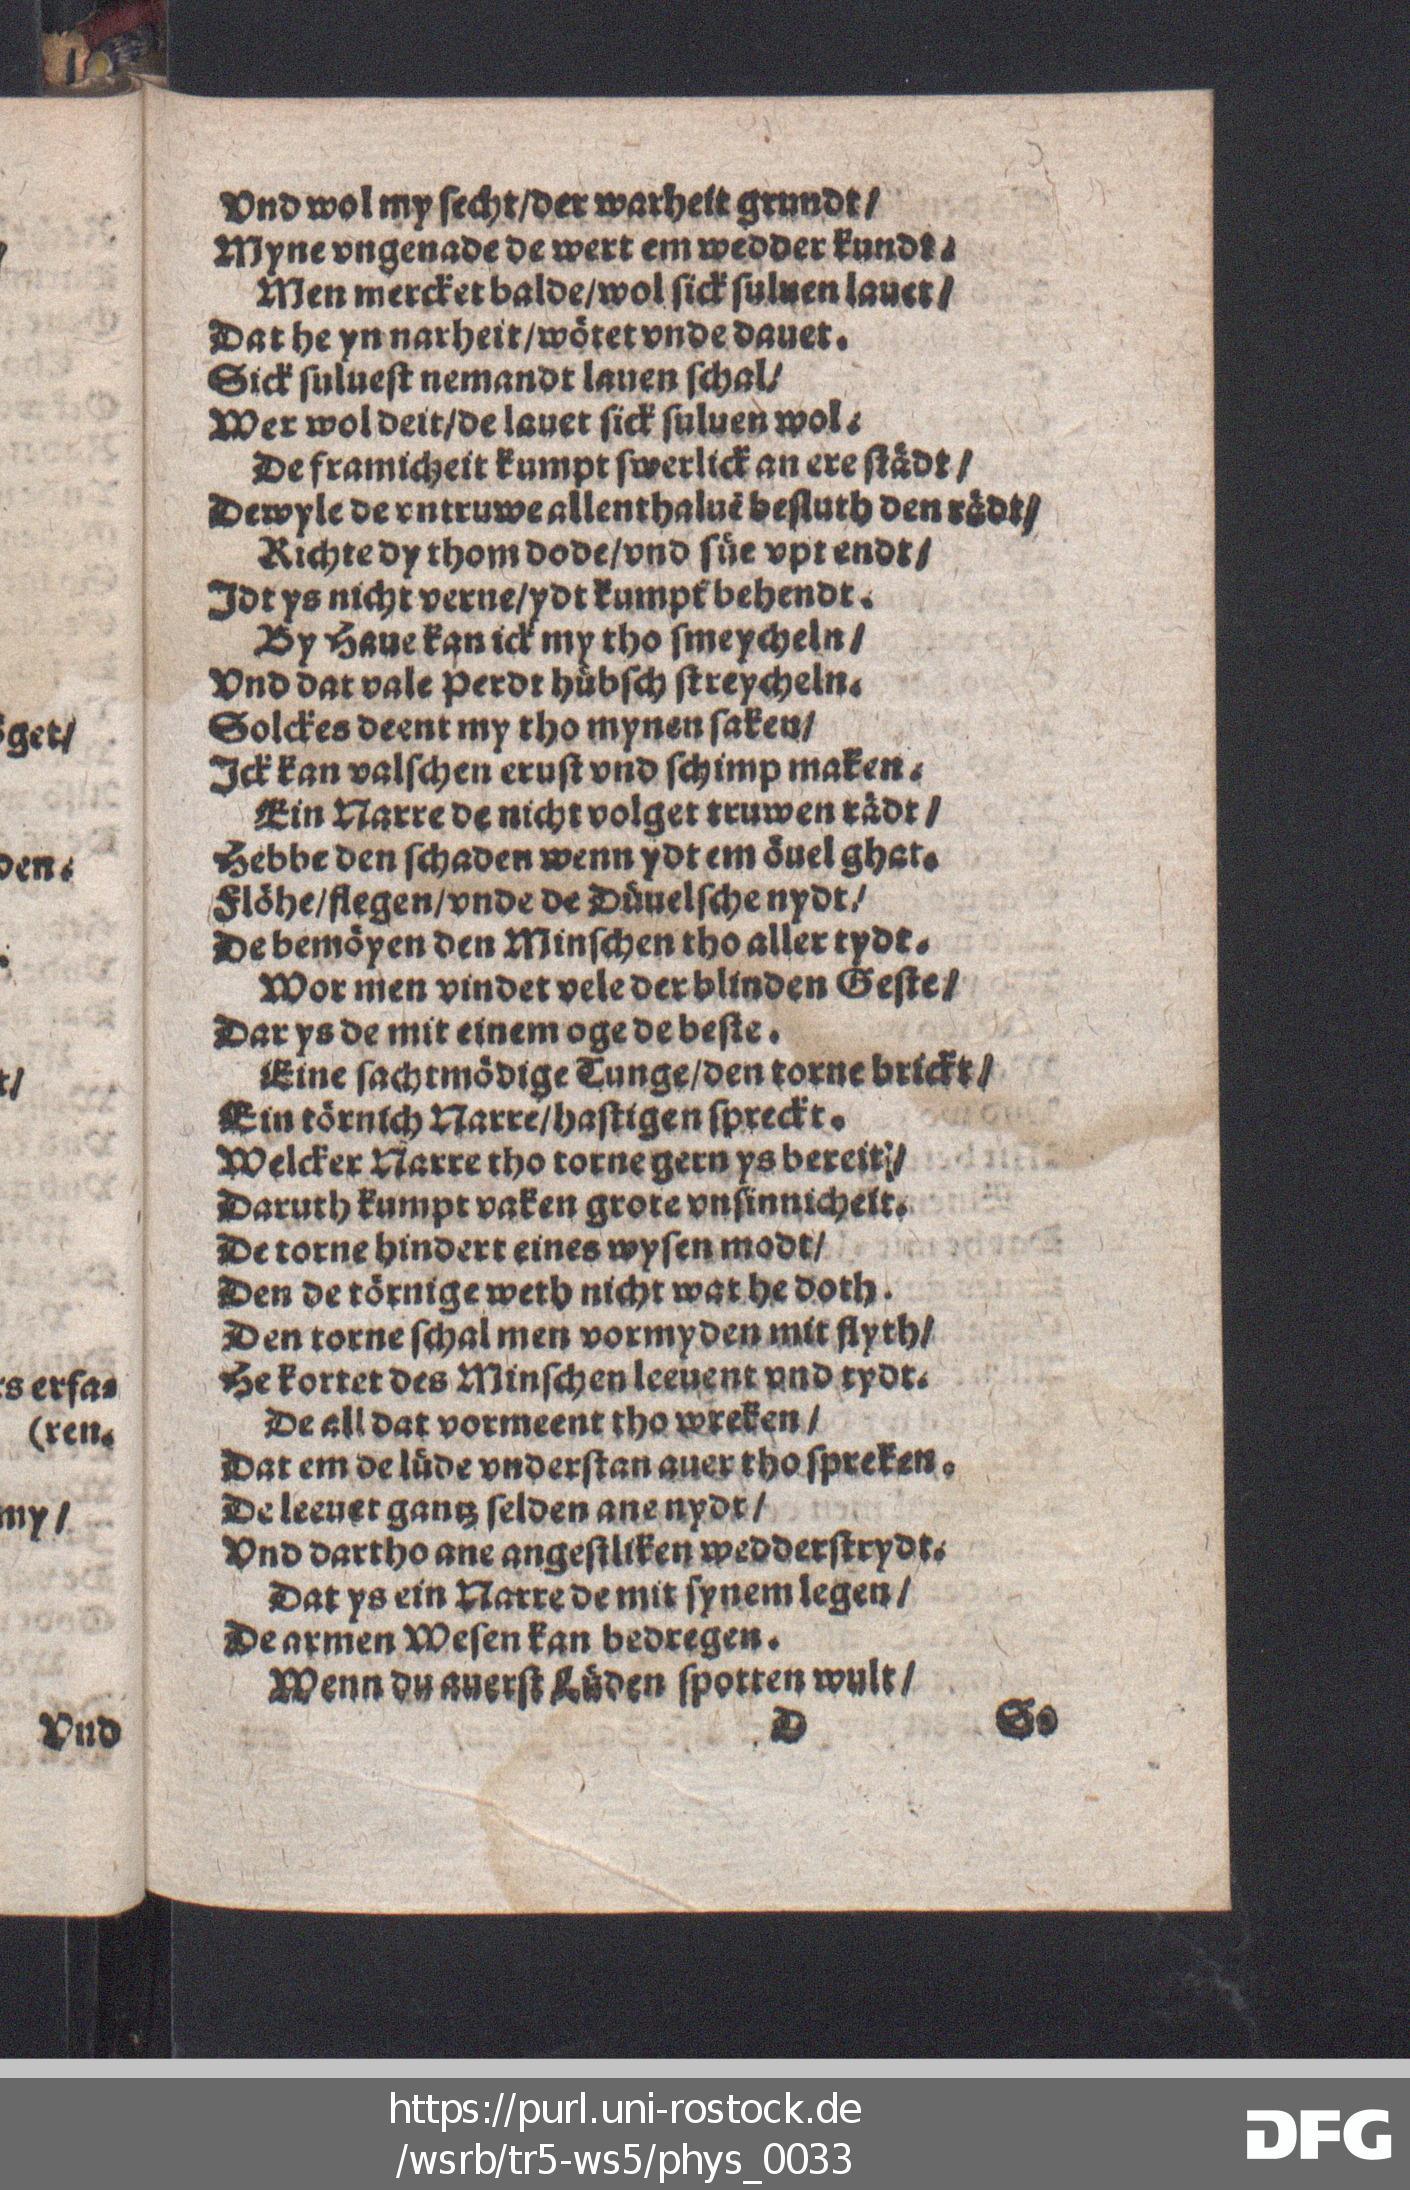 Vnd wol my secht/der warheit grundt/
Myne vngenade de wert em wedder kundt.
Men mercket balde/wol sick suluen lauet/
Dat he yn narheit/wötet vnde dauet.
Sick suluest nemandt lauen schal/
Wer wol deit/de lauet sick suluen wol.
De framicheit kumpt swerlick an ere städt/
Dewyle de vntruwe allenthaluē besluth den rädt/
Richte dy thom dode/vnd süe vpt endt/
Idt ys nicht verne/ydt kumpt behendt.
By Haue kan ick my tho smeycheln/
Vnd dat vale Perdt hübsch streycheln.
Solckes deent my tho mynen saken/
Ick kan valschen ernst vnd schimp maken.
Ein Narre de nicht volget truwen rädt/
Hebbe den schaden wenn ydt em öuel ghat.
Flöhe/flegen/vnde de Düuelsche nydt/
De bemöyen den Minschen tho aller tydt.
Wor men vindet vele der blinden Geste/
Dar ys de mit einem oge de beste.
Eine sachtmödige Tunge/den torne brickt/
Ein törnich Narre/hastigen spreckt.
Welcker Narre tho torne gern ys bereit/
Daruth kumpt vaken grote vnsinnicheit.
De torne hindert eines wysen modt/
Den de törnige weth nicht wat he doth.
Den torne schal men vormyden mit flyth/
He kortet des Minschen leeuent vnd tydt.
De all dat vormeent tho wreken/
Dat em de lüde vnderstan auer tho spreken.
De leeuet gantz selden ane nydt/
Vnd dartho ane angestliken wedderstrydt.
Dat ys ein Narre de mit synem legen/
De armen Wesen kan bedregen.
Wenn du auerst Lüden spotten wult/
D So
get/
den.
t/
rs erfa-
(ren.
my/
Vnd
https://purl.uni-rostock.de
/wsrb/tr5-ws5/phys_0033
DFG